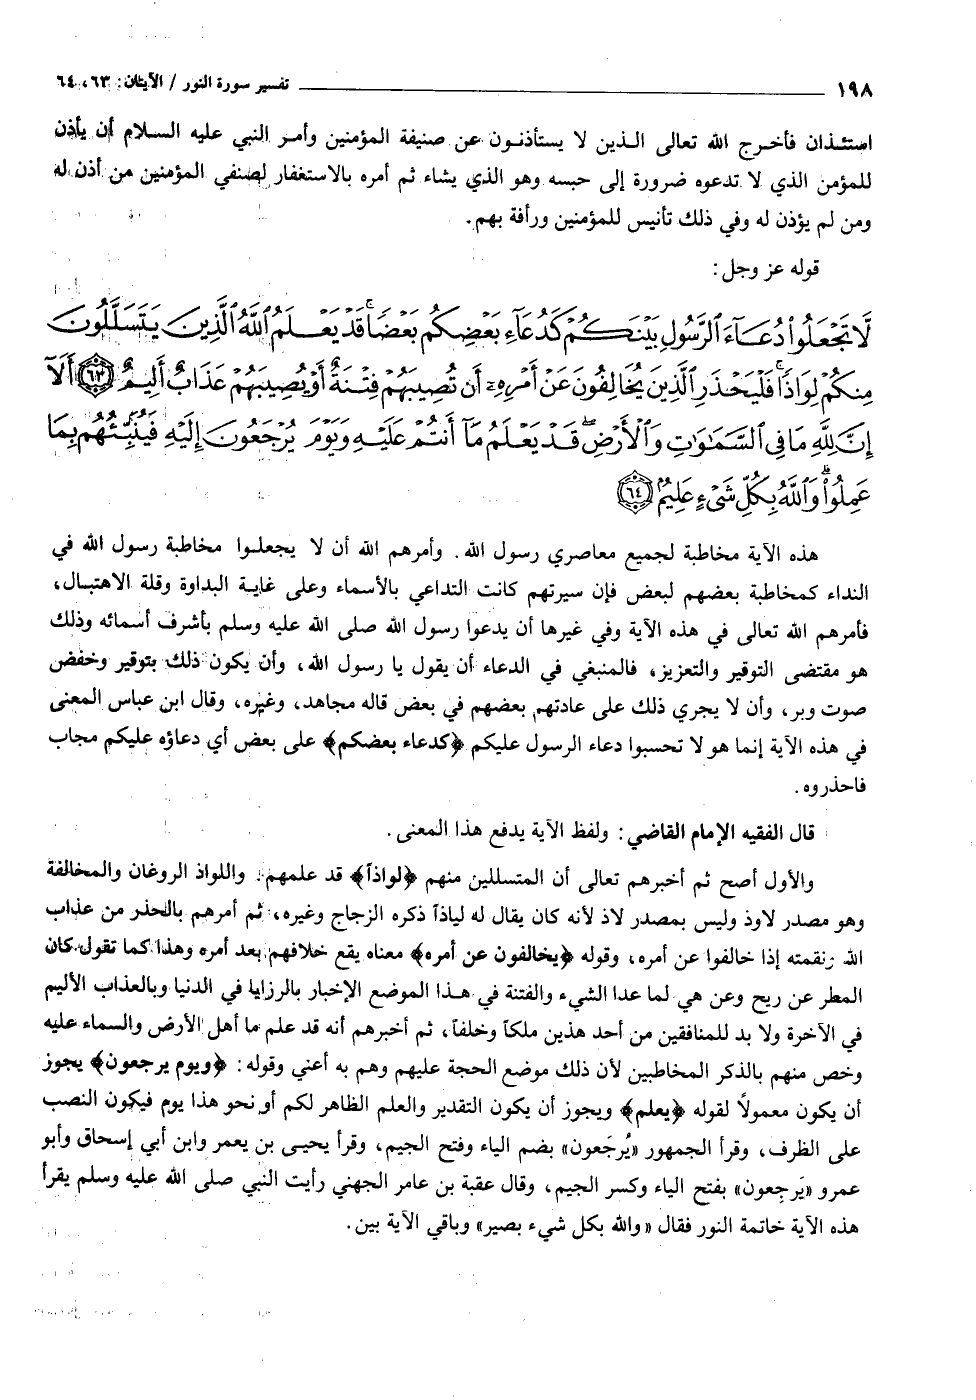 ١٩٨ تفسير سورة النور / الآيتان: ٦٣، ٦٤
استئذان فأخرج الله تعالى الذين لا يستأذنون عن صنيفة المؤمنين وأمر النبي عليه السلام أن يأذن
للمؤمن الذي لا تدعوه ضرورة إلى حبسه وهو الذي يشاء ثم أمره بالاستغفار لصنفي المؤمنين من أذن له
ومن لم يؤذن له وفي ذلك تأنيس للمؤمنين ورأفة بهم.
قوله عز وجل:
لَّا تَجْعَلُوا۟ دُعَآءَ ٱلرَّسُولِ بَيْنَكُمْ كَدُعَآءِ بَعْضِكُم بَعْضًا ۚ قَدْ يَعْلَمُ ٱللَّهُ ٱلَّذِينَ يَتَسَلَّلُونَ
مِنكُمْ لِوَاذًا ۚ فَلْيَحْذَرِ ٱلَّذِينَ يُخَالِفُونَ عَنْ أَمْرِهِۦٓ أَن تُصِيبَهُمْ فِتْنَةٌ أَوْ يُصِيبَهُمْ عَذَابٌ أَلِيمٌ ۝٦٣ أَلَآ
إِنَّ لِلَّهِ مَا فِى ٱلسَّمَٰوَٰتِ وَٱلْأَرْضِ ۖ قَدْ يَعْلَمُ مَآ أَنتُمْ عَلَيْهِ وَيَوْمَ يُرْجَعُونَ إِلَيْهِ فَيُنَبِّئُهُم بِمَا
عَمِلُوا۟ ۗ وَٱللَّهُ بِكُلِّ شَىْءٍ عَلِيمٌۢ ۝٦٤
هذه الآية مخاطبة لجميع معاصري رسول الله. وأمرهم الله أن لا يجعلوا مخاطبة رسول الله في
النداء كمخاطبة بعضهم لبعض فإن سيرتهم كانت التداعي بالأسماء وعلى غاية البداوة وقلة الاهتبال،
فأمرهم الله تعالى في هذه الآية وفي غيرها أن يدعوا رسول الله صلى الله عليه وسلم بأشرف أسمائه وذلك
هو مقتضى التوقير والتعزيز، فالمنبغي في الدعاء أن يقول يا رسول الله، وأن يكون ذلك بتوقير وخفض
صوت وبر، وأن لا يجري ذلك على عادتهم بعضهم في بعض قاله مجاهد، وغيره، وقال ابن عباس المعنى
في هذه الآية إنما هو لا تحسبوا دعاء الرسول عليكم ﴿كدعاء بعضكم﴾ على بعض أي دعاؤه عليكم مجاب
فاحذروه.
قال الفقيه الإمام القاضي: ولفظ الآية يدفع هذا المعنى.
والأول أصح ثم أخبرهم تعالى أن المتسللين منهم ﴿لواذاً﴾ قد علمهم. واللواذ الروغان والمخالفة
وهو مصدر لاوذ وليس بمصدر لاذ لأنه كان يقال له لياذاً ذكره الزجاج وغيره، ثم أمرهم بالحذر من عذاب
الله ونقمته إذا خالفوا عن أمره، وقوله ﴿يخالفون عن أمره﴾ معناه يقع خلافهم بعد أمره وهذا كما تقول كان
المطر عن ريح وعن هي لما عدا الشيء والفتنة في هذا الموضع الإخبار بالرزايا في الدنيا وبالعذاب الأليم
في الآخرة ولا بد للمنافقين من أحد هذين ملكاً وخلفاً، ثم أخبرهم أنه قد علم ما أهل الأرض والسماء عليه
وخص منهم بالذكر المخاطبين لأن ذلك موضع الحجة عليهم وهم به أعني وقوله: ﴿ويوم يرجعون﴾ يجوز
أن يكون معمولاً لقوله ﴿يعلم﴾ ويجوز أن يكون التقدير والعلم الظاهر لكم أو نحو هذا يوم فيكون النصب
على الظرف، وقرأ الجمهور «يُرجَعون» بضم الياء وفتح الجيم، وقرأ يحيى بن يعمر وابن أبي إسحاق وأبو
عمرو «يَرجِعون» بفتح الياء وكسر الجيم، وقال عقبة بن عامر الجهني رأيت النبي صلى الله عليه وسلم يقرأ
هذه الآية خاتمة النور فقال «والله بكل شيء بصير» وباقي الآية بين.